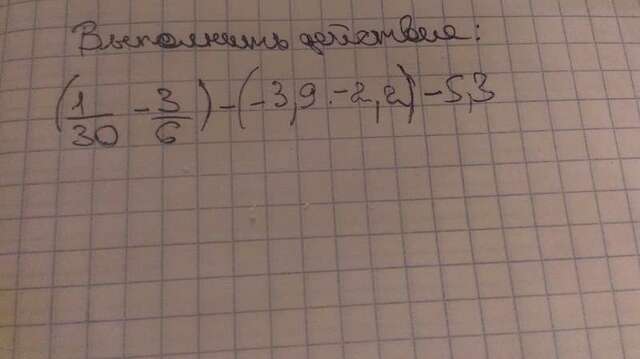 Выполнить действия:
(1/30 - 3/6) - (-3,9 . -2,2) - 5,3